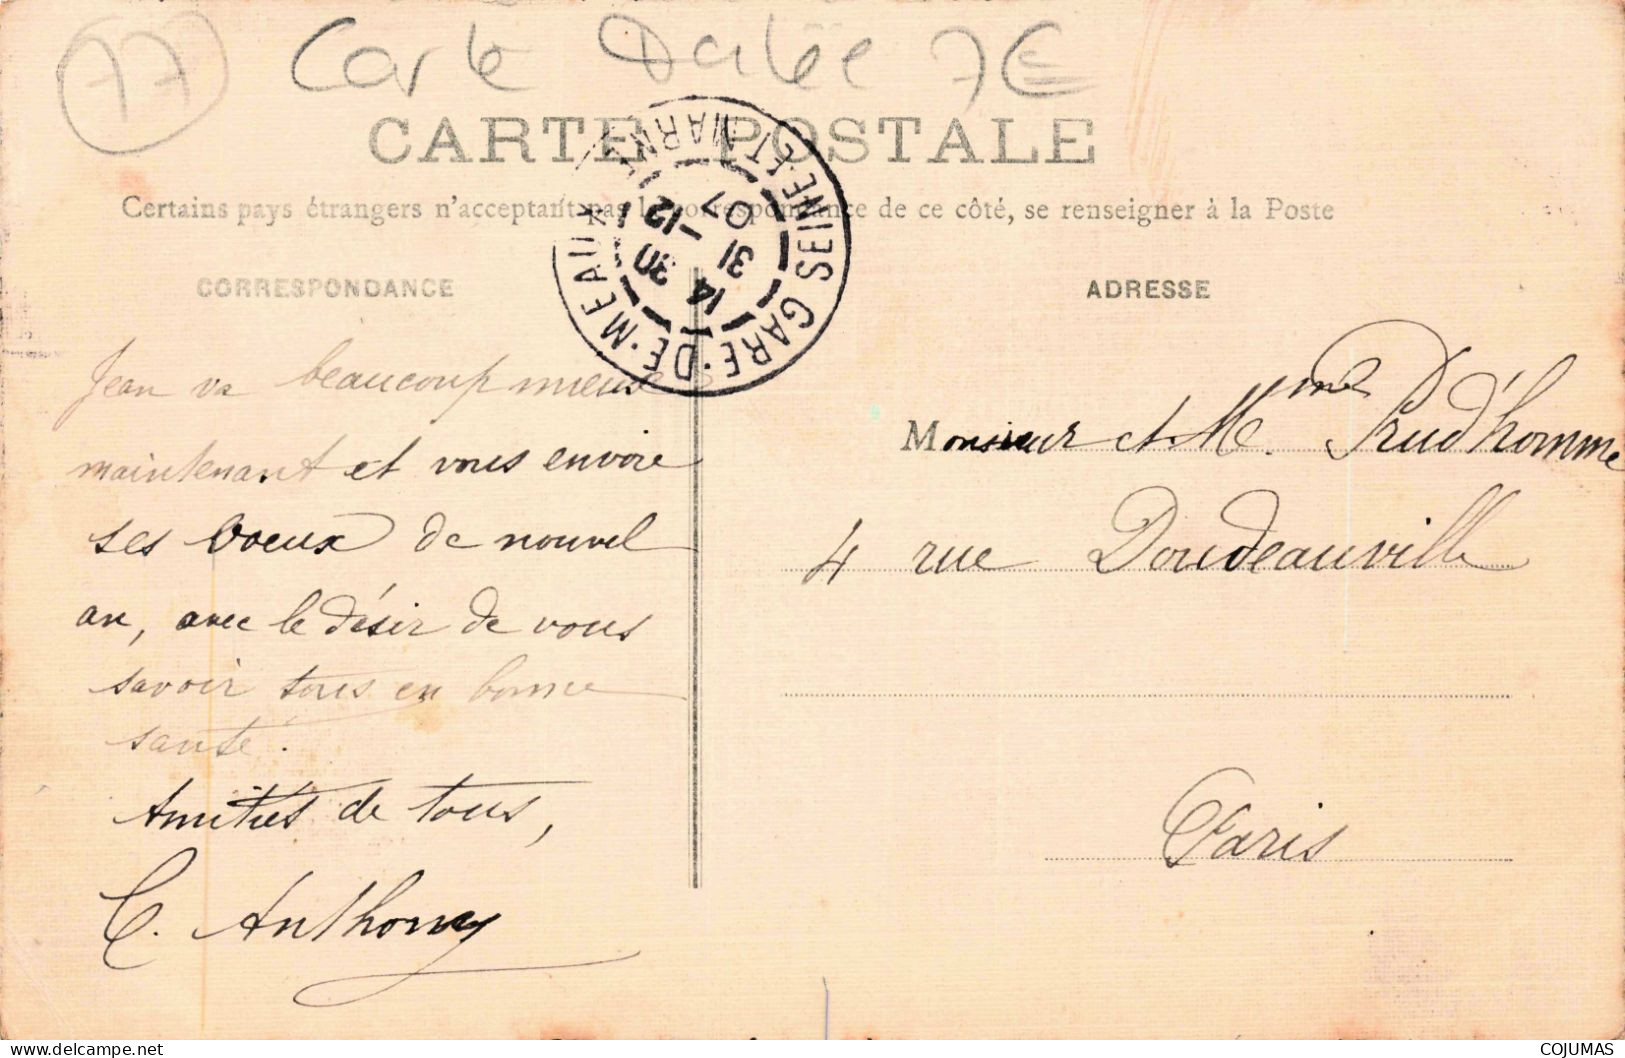 77 Carte Datée 7€
CARTE POSTALE
Certains pays étrangers n'acceptant pas la correspondance de ce côté, se renseigner à la Poste
GARE·DE·MEAUX
SEINE-ET-MARNE
14 30
31 -12
07
CORRESPONDANCE
Jean va beaucoup mieux
maintenant et vous envoie
ses voeux de nouvel
an, avec le désir de vous
savoir tous en bonne
santé.
Amitiés de tous,
C. Anthony
ADRESSE
Monsieur et Mme. Prud'homme
4 rue Doudeauville
Paris
COJUMAS